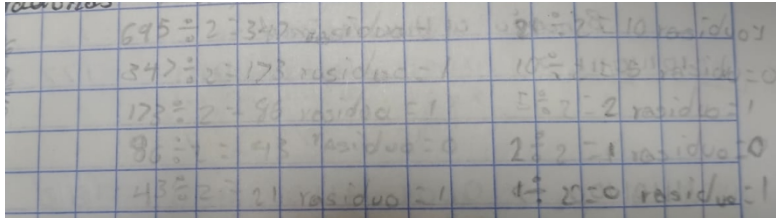 695÷2=347 residuo
347÷2=173 residuo=1
173÷2=86 residuo=1
86÷2=43 residuo=0
43÷2=21 residuo=1
21÷2=10 residuo=1
10÷2=5 residuo=0
5÷2=2 residuo=1
2÷2=1 residuo=0
1÷2=0 residuo=1